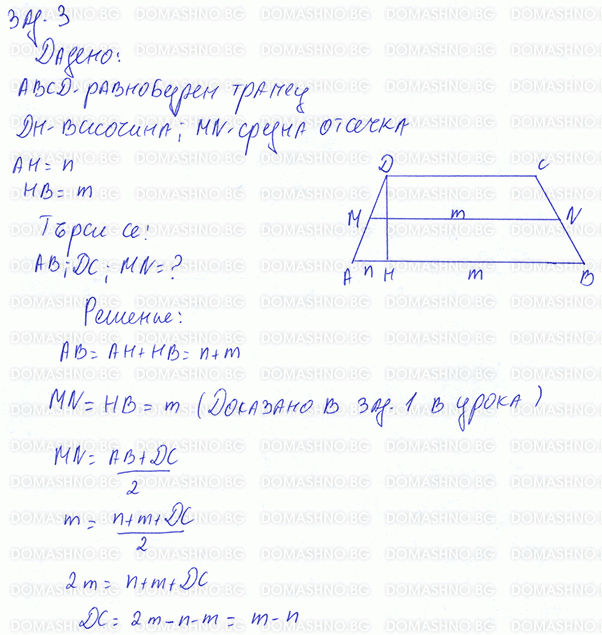 Зад. 3
Дадено:
ABCD-равнобедрен трапец
DH-височина; MN-средна отсечка
AH = n
HB = m
Търси се:
AB; DC; MN = ?
D C
M m N
A n H m B
Решение:
AB = AH + HB = n + m
MN = HB = m (Доказано в зад. 1 в урока)
MN = AB + DC
2
m = n + m + DC
2
2m = n + m + DC
DC = 2m - n - m = m - n